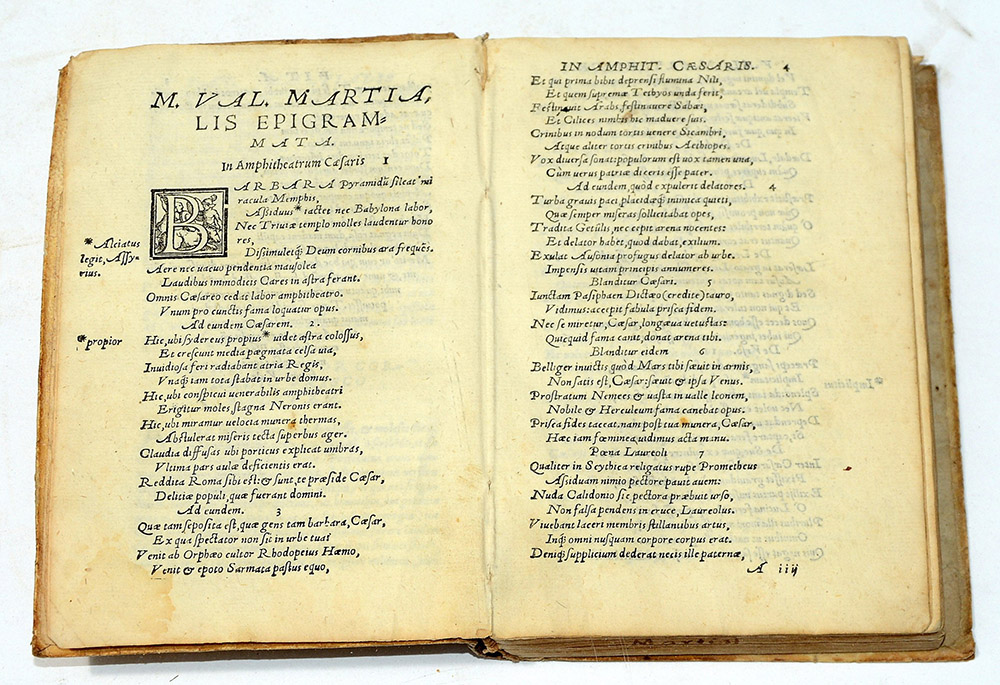 M. VAL. MARTIA,
LIS EPIGRAM=
MATA.
In Amphitheatrum Cæsaris 1
BARBARA Pyramidũ sileat mi
racula Memphis,
Assiduus * iactet nec Babylona labor,
Nec Triviæ templo molles laudentur hono
res,
Dissimuletq; Deum cornibus ara frequẽs.
* Alciatus
legit, Assy-
rius.
Aere nec vacuo pendentia mausolea
Laudibus immodicis Cares in astra ferant.
Omnis Cæsareo cedat labor amphitheatro.
Vnum pro cunctis fama loquatur opus.
Ad eundem Cæsarem. 2.
Hic, ubi sydereus propius * videt astra colossus,
* propior
Et crescunt media pægmata celsa via,
Invidiosa feri radiabant atria Regis,
Vnaq; iam tota stabat in urbe domus.
Hic, ubi conspicui venerabilis amphitheatri
Erigitur moles, stagna Neronis erant.
Hic, ubi miramur velocia munera thermas,
Abstulerat miseris tecta superbus ager.
Claudia diffusas ubi porticus explicat umbras,
Vltima pars aulæ deficientis erat.
Reddita Roma sibi est: & sunt, te præside Cæsar,
Delitiæ populi, quæ fuerant domini.
Ad eundem. 3
Quæ tam seposita est, quæ gens tam barbara, Cæsar,
Ex qua spectator non sit in urbe tua?
Venit ab Orphæo cultor Rhodopeius Hæmo,
Venit & epoto Sarmata pastus equo,
IN AMPHIT. CÆSARIS. 4
Et qui prima bibit deprensi flumina Nili,
Et quem supremæ Tethyos unda ferit.
Festinavit Arabs, festinavere Sabæi,
Et Cilices nimbis hic maduere suis.
Crinibus in nodum tortis venere Sicambri,
Atque aliter tortis crinibus Aethiopes.
Vox diversa sonat: populorum est vox tamen una,
Cum verus patriæ diceris esse pater.
Ad eundem, quòd expulerit delatores. 4
Turba gravis paci, placidæq; inimica quieti,
Quæ semper miseras sollicitabat opes,
Tradita Getulis, nec cepit arena nocentes:
Et delator habet, quod dabat, exilium.
Exulat Ausonia profugus delator ab urbe.
Impensis vitam principis annumeres.
Blanditur Cæsari. 5
Iunctam Pasiphaen Dictæo (credite) tauro,
Vidimus: accepit fabula prisca fidem.
Nec se miretur, Cæsar, longæva vetustas:
Quicquid fama canit, donat arena tibi.
Blanditur eidem 6
Belliger invictis quod Mars tibi sævit in armis,
Non satis est, Cæsar: sævit & ipsa Venus.
Prostratum Nemees & vasta in valle leonem,
Nobile & Herculeum fama canebat opus.
Prisca fides taceat. nam post tua munera, Cæsar,
Hæc iam fœminea vidimus acta manu.
Pœna Laureoli 7
Qualiter in Scythica religatus rupe Prometheus
Assiduam nimio pectore pavit avem:
Nuda Calidonio sic pectora præbuit urso,
Non falsa pendens in cruce, Laureolus.
Vivebant laceri membris stillantibus artus,
Inq; omni nusquam corpore corpus erat.
Deniq; supplicium dederat necis ille paternæ,
A iiij
Martial